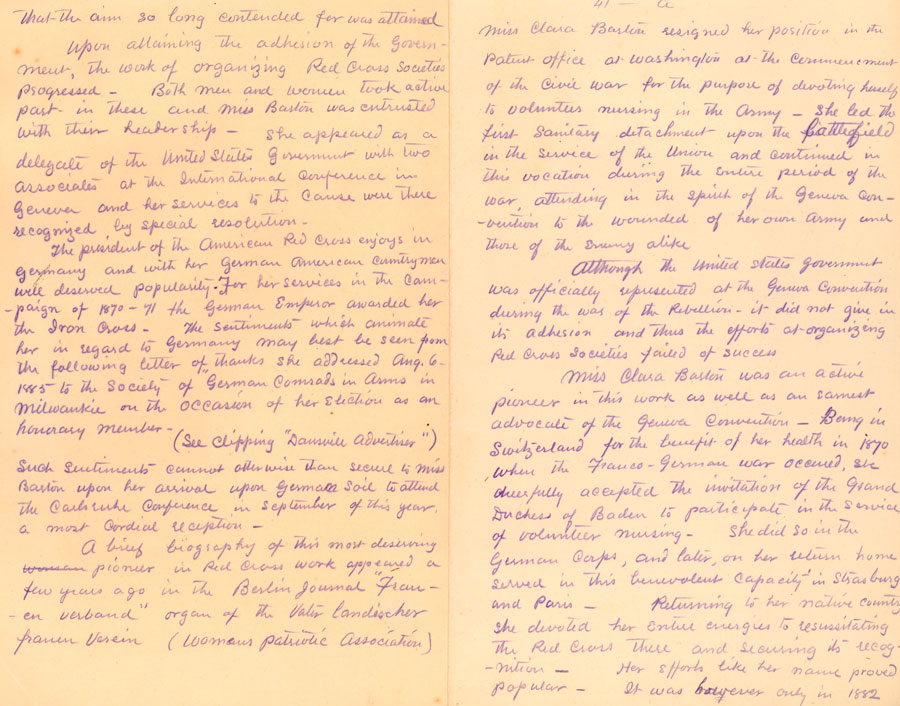 that the aim so long contended for was attained
Upon attaining the adhesion of the Govern-
ment, the work of organizing Red Cross Societies
progressed - Both men and women took active
part in these and Miss Barton was entrusted
with their leadership - She appeared as a
delegate of the United States Goverment with two
associates at the International Conference in
Geneva and her services to the Cause were there
recognized by special resolution -
The president of the American Red Cross enjoys in
Germany and with her German American Countrymen
well deserved popularity. For her services in the Cam-
-paign of 1870 - 71 the German Emperor awarded her
the Iron Cross - The sentiments which animate
her in regard to Germany may best be seen from
the following letter of thanks she addressed Aug. 6 -
1885 to the Society of "German Comrads in Arms in
Milwaukie on the occasion of her election as an
honorary member -
(See clipping "Dansville Advertiser")
Such sentiments cannot otherwise than secure to Miss
Barton upon her arrival upon German Soil to attend
the Carlsruhe Conference in September of this year,
a most Cordial reception -
A brief biography of this most deserving
woman pioneer in Red Cross work appeared a
few years ago in the Berlin Journal "Frau-
-en verband" organ of the Vater landischer
frauen Verein (Womans Patriotic Association)
41 - a
Miss Clara Barton resigned her position in the
Patent office at Washington at the Commencement
of the Civil war for the purpose of devoting herself
to volunteer nursing in the Army - She led the
first Sanitary detachment upon the battlefield
in the service of the Union and continued in
this vocation during the entire period of the
war, attending in the spirit of the Geneva Con-
-vention to the wounded of her own Army and
those of the Enemy alike
Although the United States Goverment
was officially represented at the Geneva Convention
during the war of the Rebellion - it did not give in
its adhesion and thus the efforts at organizing
Red Cross Societies failed of success
Miss Clara Barton was an active
pioneer in this work as well as an earnest
advocate of the Geneva Convention - Being in
Switzerland for the benefit of her health in 1870
when the Franco-German war occured, she
cheerfully accepted the invitation of the Grand
Duchess of Baden to participate in the Service
of volunteer nursing - She did so in the
German Corps, and later, on her return home
served in this benevolent Capacity in Strasburg
and Paris - Returning to her native country
she devoted her entire energies to resussitating
the Red Cross there and securing its recog-
-nition - Her efforts like her name proved
popular - It was however only in 1882